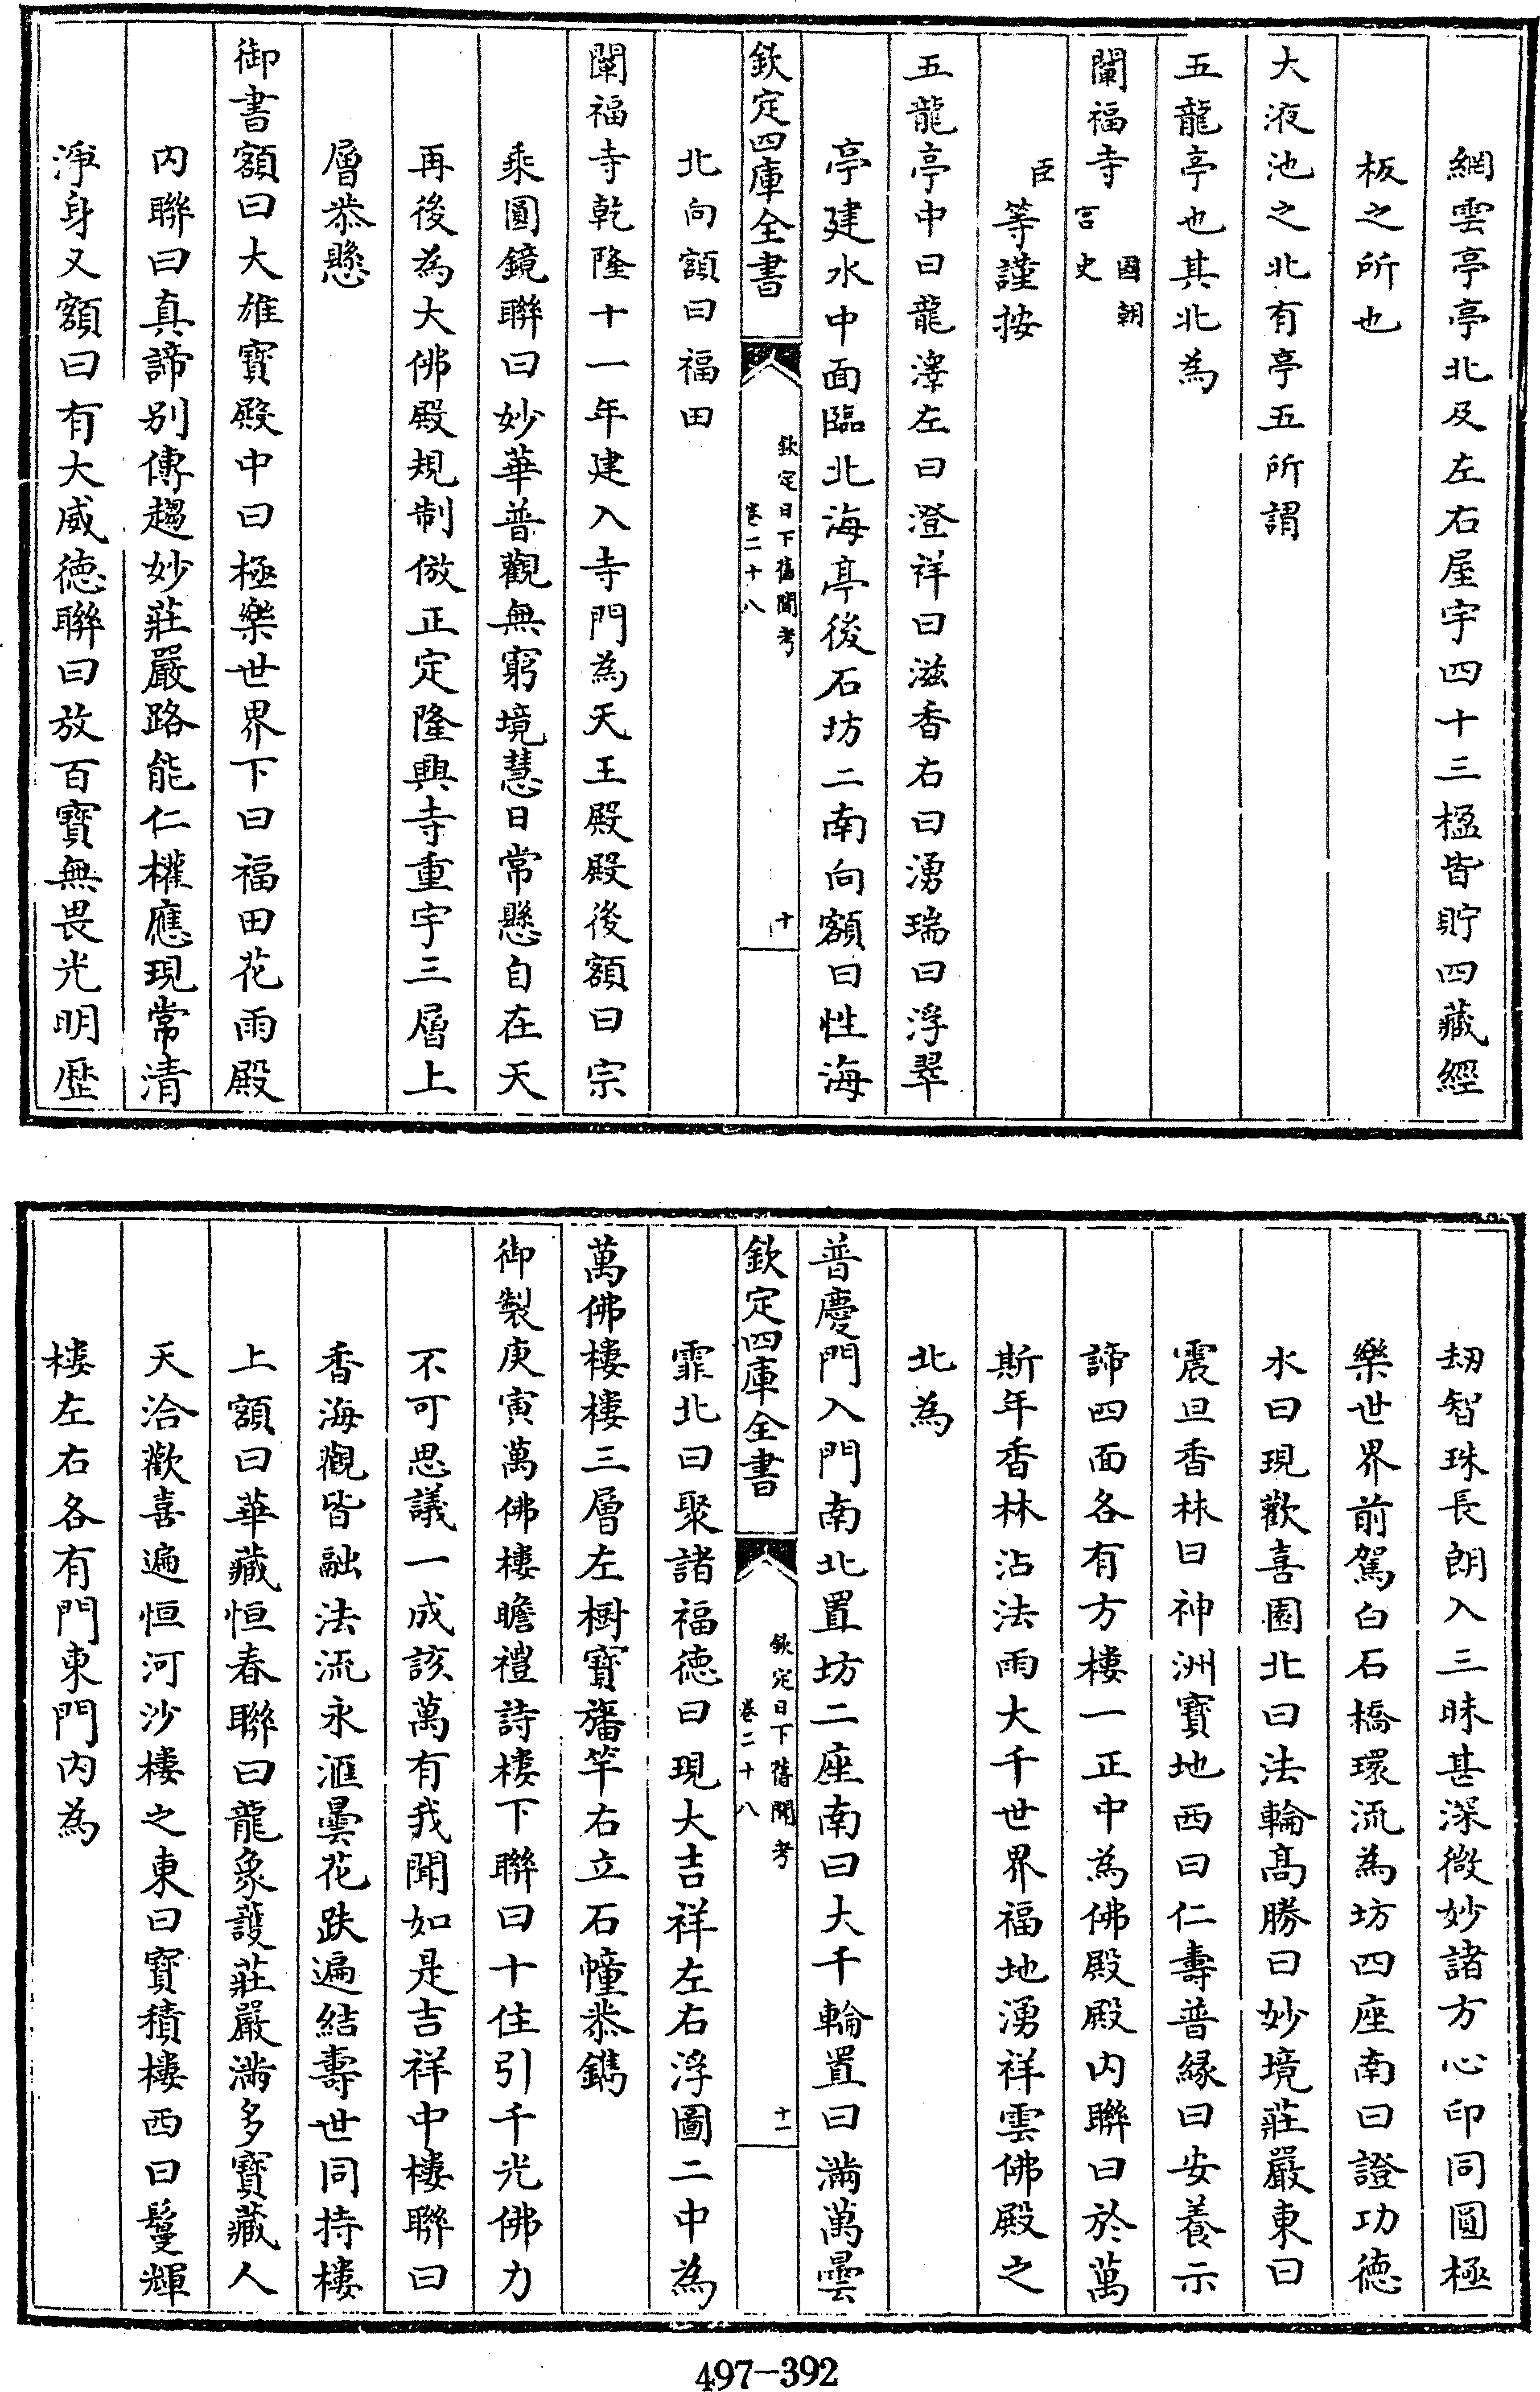 網雲亭亭北及左右屋宇四十三楹皆貯四藏經
板之所也
大液池之北有亭五所謂
五龍亭也其北為
闡福寺國朝宮史
臣等謹按
五龍亭中曰龍澤左曰澄祥曰滋香右曰湧瑞曰浮翠
亭建水中面臨北海亭後石坊二南向額曰性海
欽定四庫全書
欽定日下舊聞考
卷二十八
十
北向額曰福田
闡福寺乾隆十一年建入寺門為天王殿殿後額曰宗
乘圓鏡聯曰妙華普觀無窮境慧日常懸自在天
再後為大佛殿規制倣正定隆興寺重宇三層上
層恭懸
御書額曰大雄寶殿中曰極樂世界下曰福田花雨殿
内聯曰真諦别傳超妙莊嚴路能仁權應現常清
淨身又額曰有大威德聯曰放百寶無畏光明歴
刼智珠長朗入三昧甚深微妙諸方心印同圓極
樂世界前駕白石橋環流為坊四座南曰證功德
水曰現歡喜園北曰法輪髙勝曰妙境莊嚴東曰
震旦香林曰神洲寶地西曰仁壽普緣曰安養示
諦四面各有方樓一正中為佛殿殿内聯曰於萬
斯年香林沾法雨大千世界福地湧祥雲佛殿之
北為
普慶門入門南北置坊二座南曰大千輪置曰滿萬曇
欽定四庫全書
欽定日下舊聞考
卷二十八
十一
霏北曰聚諸福德曰現大吉祥左右浮圖二中為
萬佛樓樓三層左樹寶旛竿右立石幢恭鐫
御製庚寅萬佛樓瞻禮詩樓下聯曰十住引千光佛力
不可思議一成該萬有我聞如是吉祥中樓聯曰
香海觀皆融法流永滙曇花趺遍結壽世同持樓
上額曰華藏恒春聯曰龍象護莊嚴滿多寶藏人
天洽歡喜遍恒河沙樓之東曰寶積樓西曰鬘輝
樓左右各有門東門内為
497-392